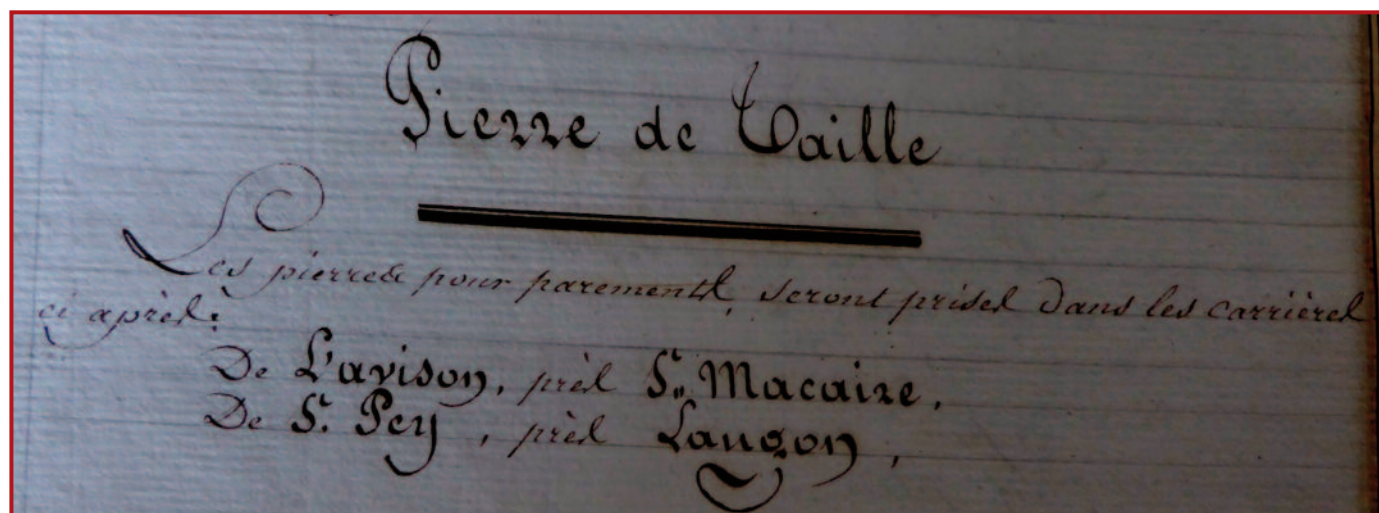 Pierre de Taille
Les pierres pour parements, seront prises dans les carrières
ci après:
De L'avison, près St. Macaire,
De St. Pey, près Langon,